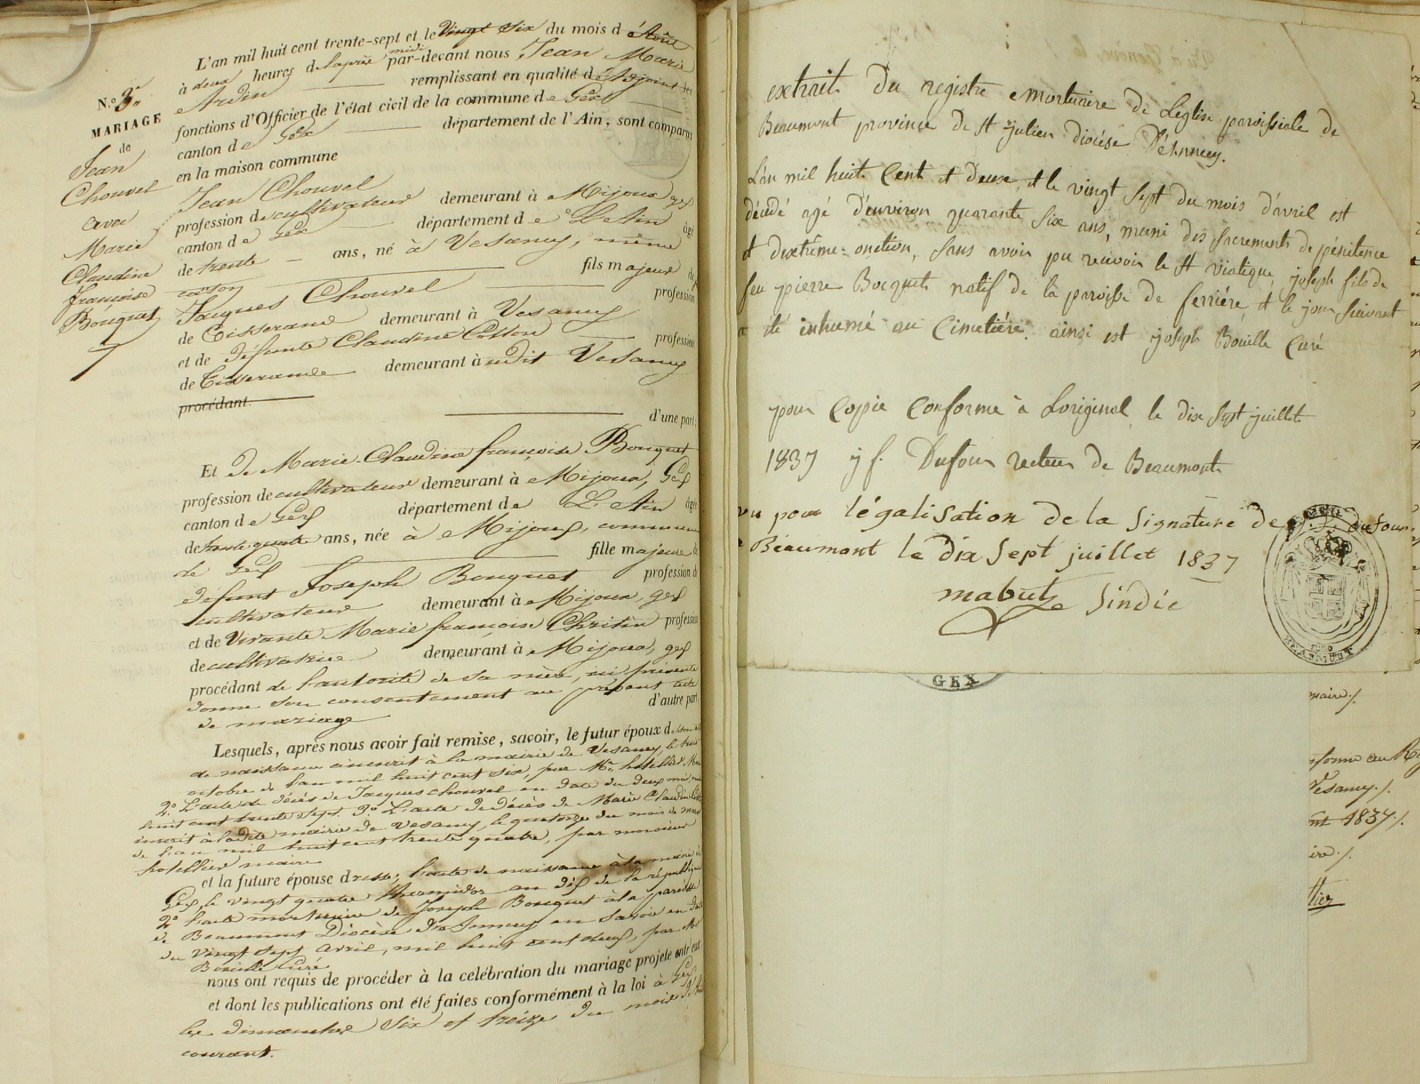 L'an mil huit cent trente-sept et le vingt six du mois d'Août
à deux heures de l'après midi par-devant nous Jean Marie
Ardin remplissant en qualité d'Adjoint les
fonctions d'Officier de l'état civil de la commune de Gex
canton de Gex département de l'Ain, sont comparus
en la maison commune
N.º 3
MARIAGE
de
Jean
Chouvel
avec
Marie
Claudine
françoise
Bouquet
Jean Chouvel
profession de cultivateur demeurant à Mijoux, gex
canton de Gex département de L'Ain âgé
de trente ans, né à Vesancy, même
canton fils majeur de
Jacques Chouvel profession
de Tisserand demeurant à Vesancy
et de défunte Claudine Cotton profession
de Tisserande demeurant à udit Vesancy
procédant
d'une part;
Et de Marie Claudine françoise Bouquet
profession de cultivateur demeurant à Mijoux, Gex
canton de Gex département de L'Ain âgée
de trente quatre ans, née à Mijoux, commune
de Gex fille majeure de
défunt Joseph Bouquet profession de
cultivateur demeurant à Mijoux, gex
et de Vivante Marie françoise Christin profession
de cultivatrice demeurant à Mijoux, gex
procédant de l'autorité de sa mère, ici présente
donne son consentement au présent acte
de mariage d'autre part
Lesquels, après nous avoir fait remise, savoir, le futur époux de
de naissance inscrit à la mairie de Vesancy, le
octobre de l'an mil huit cent six, par Mr. hotellier
2º L'acte de décès de Jacques Chouvel en date du deux mai
huit cent trente sept. 3º L'acte de décès de Marie Claudine
inscrit à ladite mairie de Vesancy, le quatorze du mois de
de l'an mil huit cent trente quatre, par monsieur
hotellier maire
et la future épouse l'acte de naissance à la mairie de
Gex, le vingt quatre Thermidor an dix de la république
2º l'acte mortuaire de Joseph Bouquet à la paroisse
de Beaumont Diocèse d'Annecy en Savoie en date
du Vingt Sept Avril, mil huit cent deux, par Mr
Bouille Curé
nous ont requis de procéder à la celébration du mariage projeté entr'eux
et dont les publications ont été faites conformément à la loi à Gex
les dimanches Six et treize du mois d'
courant.
extrait du registre mortuaire de Léglise paroissiale de
Beaumont province de St julien diocése D'énnecy.
L'an mil huit Cent et Deux, et le vingt Sept du mois d'avril est
décédé agé d'environ quarante Six ans, muni des Sacrements de pénitence
et D'extrême-onction, Sans avoir pu recevoir le St Viatique, joseph fils de
feu pierre Bocquet natif de la paroisse de ferriére, et le jour Suivant
a été inhumé au Cimetiére. ainsi est joseph Bouille Curé
pour Copie Conforme à Loriginal le dix Sept juillet
1837 j f. Dufour recteur de Beaumont
vu pour légalisation de la Signature de dufour
Beaumont le dix Sept juillet 1837
mabut Sindic
BEAUMONT
GEX
maire ./.
Vesancy ./.
1837 ./.